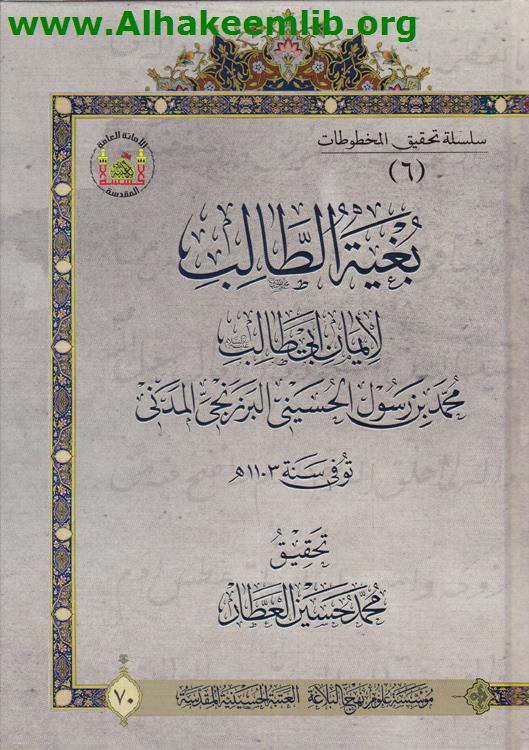 www.Alhakeemlib.org
سلسلة تحقيق المخطوطات
(٦)
الأمانة العامة
المقدسة
بُغْيَةُ الطَّالِبِ
لإيمان أبي طالب
محمد بن رسول الحسيني البرزنجي المدني
توفى سنة ١١٠٣هـ
تحقيق
محمد حسين العطار
مؤسسة علوم نهج البلاغة العتبة الحسينية المقدسة
٧٠